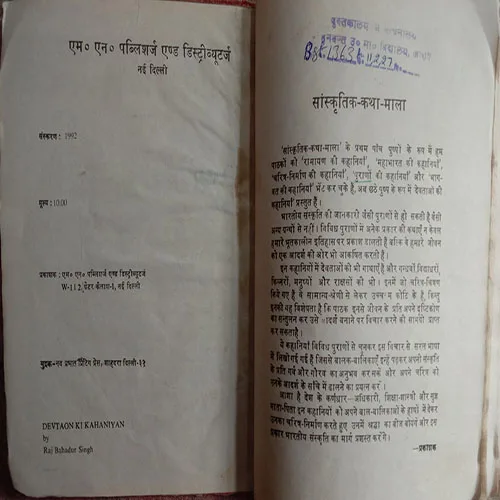 एम० एन० पब्लिशर्ज एण्ड डिस्ट्रीब्यूटर्ज
नई दिल्ली
संस्करण : 1992
मूल्य : 10.00
प्रकाशक : एम० एन० पब्लिशर्ज एण्ड डिस्ट्रीब्यूटर्ज
W-112, ग्रेटर कैलाश-1, नई दिल्ली
मुद्रक-नव प्रभात प्रिंटिंग प्रेस, शाहदरा दिल्ली-३२
DEVTAON KI KAHANIYAN
by
Raj Bahadur Singh
पुस्तकालय
उ० मा० विद्यालय,
सांस्कृतिक-कथा-माला
'सांस्कृतिक-कथा-माला' के प्रथम पाँच पुष्पों के रूप में हम
पाठकों को 'रामायण की कहानियाँ', 'महाभारत की कहानियाँ',
'चरित्र-निर्माण की कहानियाँ', 'पुराणों की कहानियाँ' और 'भाग-
वत की कहानियाँ' भेंट कर चुके हैं, अब छठे पुष्प के रूप में देवताओं की
कहानियाँ प्रस्तुत हैं।
भारतीय संस्कृति की जानकारी जैसी पुराणों से हो सकती है वैसी
अन्य ग्रन्थों से नहीं। विविध पुराणों में अनेक प्रकार की कथाएँ न केवल
हमारे भूतकालीन इतिहास पर प्रकाश डालती हैं बल्कि वे हमारे जीवन
को एक आदर्श की ओर भी आकर्षित करती हैं।
इन कहानियों में देवताओं की भी गाथाएँ हैं और गन्धर्वों विद्याधरों,
किन्नरों, मनुष्यों और राक्षसों की भी। इनमें जो चरित्र-चित्रण
किये गए हैं वे सामान्य-श्रेणी से लेकर उच्चतम कोटि के हैं, किन्तु
इनकी यह विशेषता है कि पाठक इनसे जीवन के प्रति अपने दृष्टिकोण
का सन्तुलन कर उसे आदर्श बनाने पर विचार करने की सामग्री प्राप्त
कर सकता है।
ये कहानियाँ विविध पुराणों से चुनकर इस विचार से सरल भाषा
में लिखी गई हैं जिससे बालक-बालिकाएँ इन्हें पढ़कर अपनी संस्कृति
के प्रति गर्व और गौरव का अनुभव कर सकें और अपने चरित्र को
उनके आदर्श के साँचे में ढालने का प्रयत्न करें।
आशा है देश के कर्णधार—अधिकारी, शिक्षा-शास्त्री और सुज्ञ
माता-पिता इन कहानियों को अपने बाल-बालिकाओं के हाथों में देकर
उनका चरित्र-निर्माण करते हुए उनमें श्रद्धा का बीज बोयेंगे और इस
प्रकार भारतीय संस्कृति का मार्ग प्रशस्त करेंगे।
—प्रकाशक